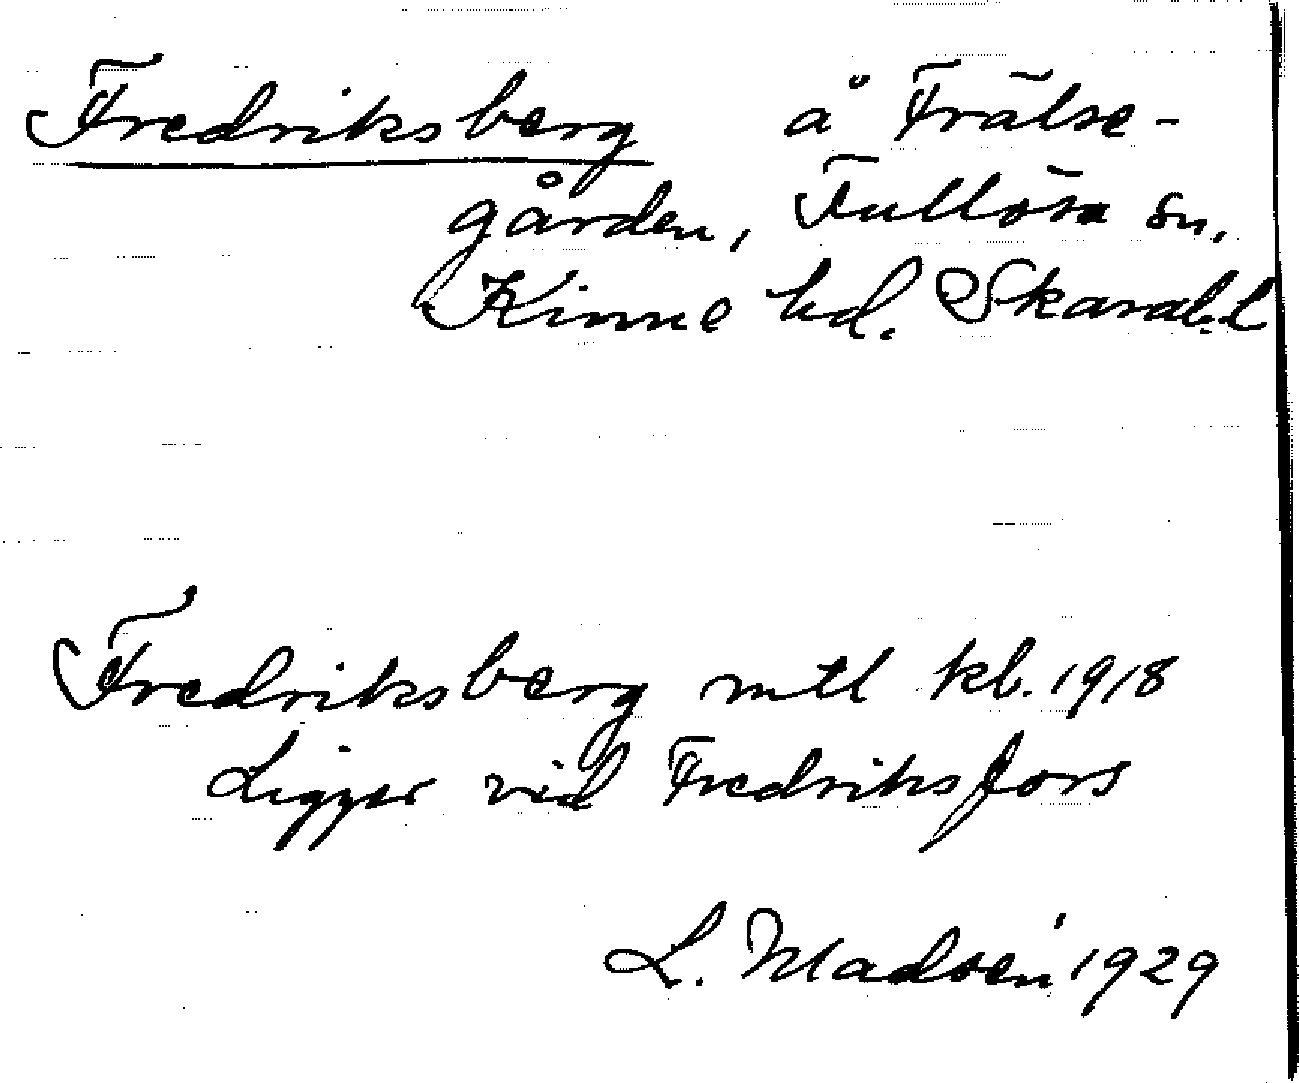 Fredriksberg å Frälse-
gården, Fullösa sn,
Kinne hd. Skarab.l
Fredriksberg mtl kb. 1918
Ligger vid Fredriksfors
L. Madsén 1929